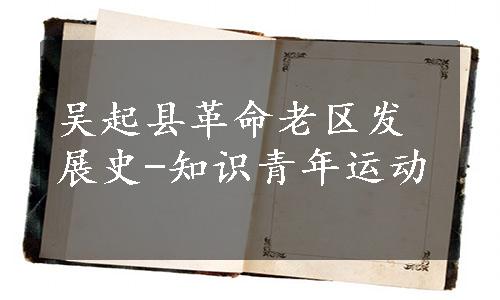 吴起县革命老区发
展史-知识青年运动